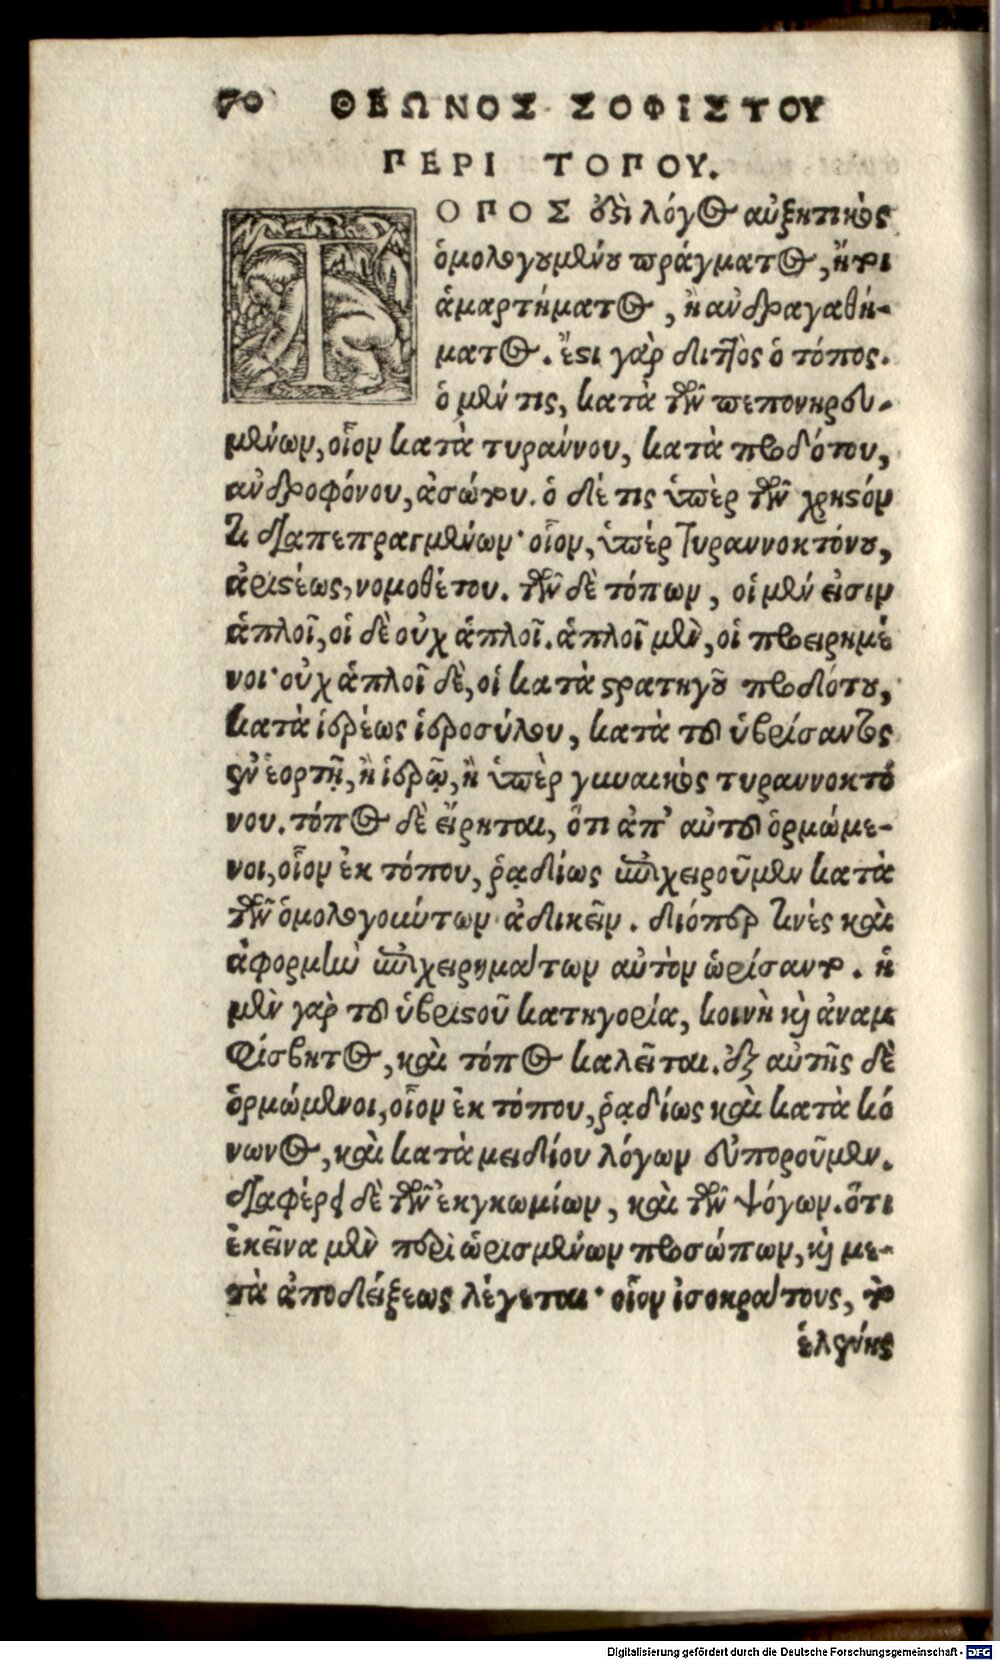 70 ΘΕΩΝΟΣ ΣΟΦΙΣΤΟΥ
ΠΕΡΙ ΤΟΠΟΥ.
ΤΟΠΟΣ ἐστὶ λόγος αὐξητικὸς
ὁμολογουμένου πράγματος, ἤτοι
ἁμαρτήματος, ἢ ἀνδραγαθή-
ματος. ἔστι γὰρ διττὸς ὁ τόπος.
ὁ μέν τις, κατὰ τῶν πεπονηρευ-
μένων, οἷον κατὰ τυράννου, κατὰ προδότου,
ἀνδροφόνου, ἀσώτου. ὁ δέ τις ὑπὲρ τῶν χρηστόν
τι διαπεπραγμένων· οἷον, ὑπέρ τυραννοκτόνου,
ἀριστέως, νομοθέτου. τῶν δὲ τόπων, οἱ μέν εἰσιν
ἁπλοῖ, οἱ δὲ οὐχ ἁπλοῖ. ἁπλοῖ μὲν, οἱ προειρημέ
νοι· οὐχ ἁπλοῖ δὲ, οἱ κατὰ στρατηγοῦ προδότου,
κατὰ ἱερέως ἱεροσύλου, κατὰ τοῦ ὑβρίσαντος
ἐν ἑορτῇ, ἢ ἱερῷ, ἢ ὑπὲρ γυναικὸς τυραννοκτό
νου. τόπος δὲ εἴρηται, ὅτι ἀπ’ αὐτοῦ ὁρμώμε-
νοι, οἷον ἐκ τόπου, ῥᾳδίως ἐπιχειροῦμεν κατὰ
τῶν ὁμολογούντων ἀδικεῖν. διόπερ τινὲς καὶ
ἀφορμὴν ἐπιχειρημάτων αὐτὸν ὡρίσαντο. ἡ
μὲν γὰρ τοῦ ὑβριστοῦ κατηγορία, κοινὴ καὶ ἀναμ
φίσβητος, καὶ τόπος καλεῖται. ἐξ αὐτῆς δὲ
ὁρμώμενοι, οἷον ἐκ τόπου, ῥᾳδίως καὶ κατὰ κό
νωνος, καὶ κατὰ μειδίου λόγων εὐποροῦμεν.
διαφέρει δὲ τῶν ἐγκωμίων, καὶ τῶν ψόγων. ὅτι
ἐκεῖνα μὲν περὶ ὡρισμένων προσώπων, καὶ με-
τὰ ἀποδείξεως λέγεται· οἷον ἰσοκράτους, τὸ
ἑλένης
Digitalisierung gefördert durch die Deutsche Forschungsgemeinschaft - DFG